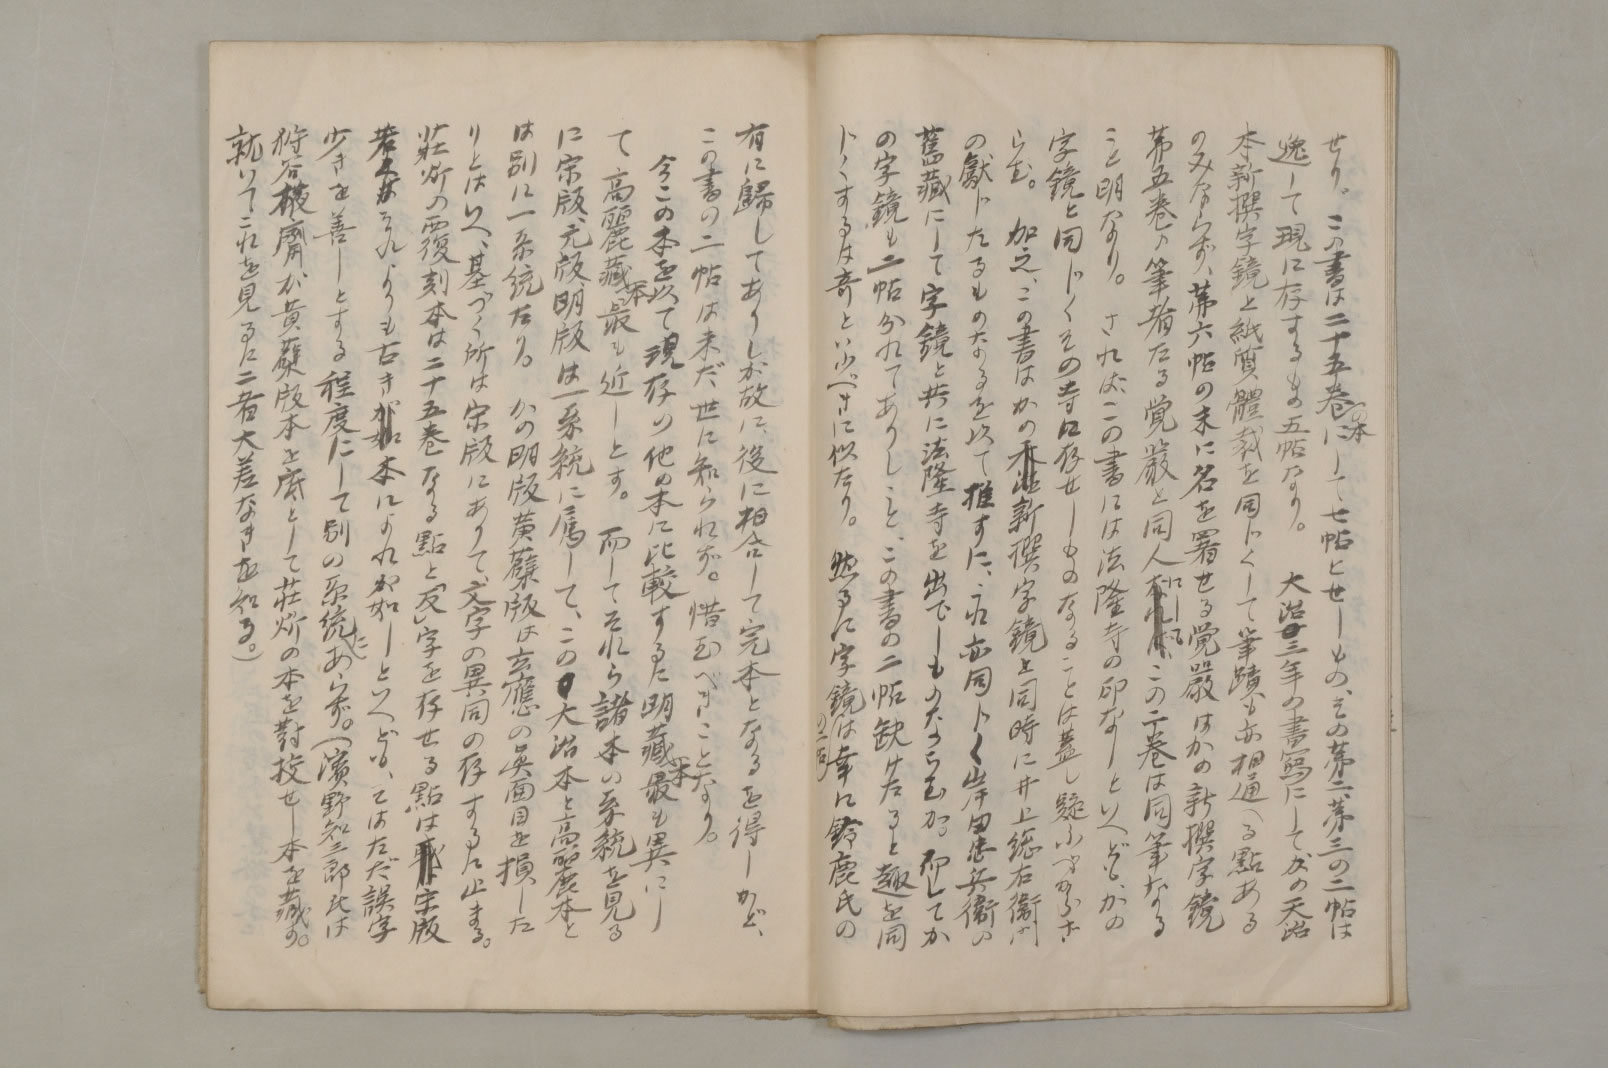 せり。この書は二十五巻にして七帖とせしもの、その第二、第三の二帖は
逸して現に存するもの五帖なり。大治三年の書写にしてかの天治
本新撰字鏡と紙質體裁を同じくして筆蹟も亦相通へる點ある
のみならず、第六帖の末に名を署せる覚嚴はかの新撰字鏡
第五巻の筆者たる覚嚴と同人にしてこの二巻は同筆なる
こと明なり。されば、この書には法隆寺の印なしといへども、かの
字鏡と同じくその寺に存せしものなることは蓋し疑ふべからざ
らむ。加之、この書はかの新撰字鏡と同時に井上総右衛門
の獻じたるものなるを以て推すに、これ亦同じく岸田忠兵衛の
舊藏にして字鏡と共に法隆寺を出でしものならむか。而してか
の字鏡も二帖分れてありしこと、この書の二帖缺けたると趣を同
じくするは奇といふべきに似たり。然るに字鏡の二帖は幸に鈴鹿氏の
有に歸してありしが故に、後に相合して完本となるを得しかど、
この書の二帖は未だ世に知られず。惜むべきことなり。
今この本を以て現存の他の本に比較するに明藏本最も異にし
て高麗藏本最も近しとす。而してそれら諸本の系統を見る
に宋版、元版、明版は一系統に属して、この大治本と高麗本と
は別に一系統たり。かの明版黄蘗版は玄應の眞面目を損した
りとはいへ、基づく所は宋版にありて、文字の異同の存するに止まる。
莊炘の覆刻本は二十五巻なる點と「反」字を存せる點は宋版
よりも古き本によれるが如しといへども、こはただ誤字
少きを善しとする程度にして別の系統にあらず。(濱野知三郎氏は
狩谷棭齋が黄蘗版本を底として莊炘の本を對挍せし本を藏す。
就いてこれを見るに二者大差なきを知る。)